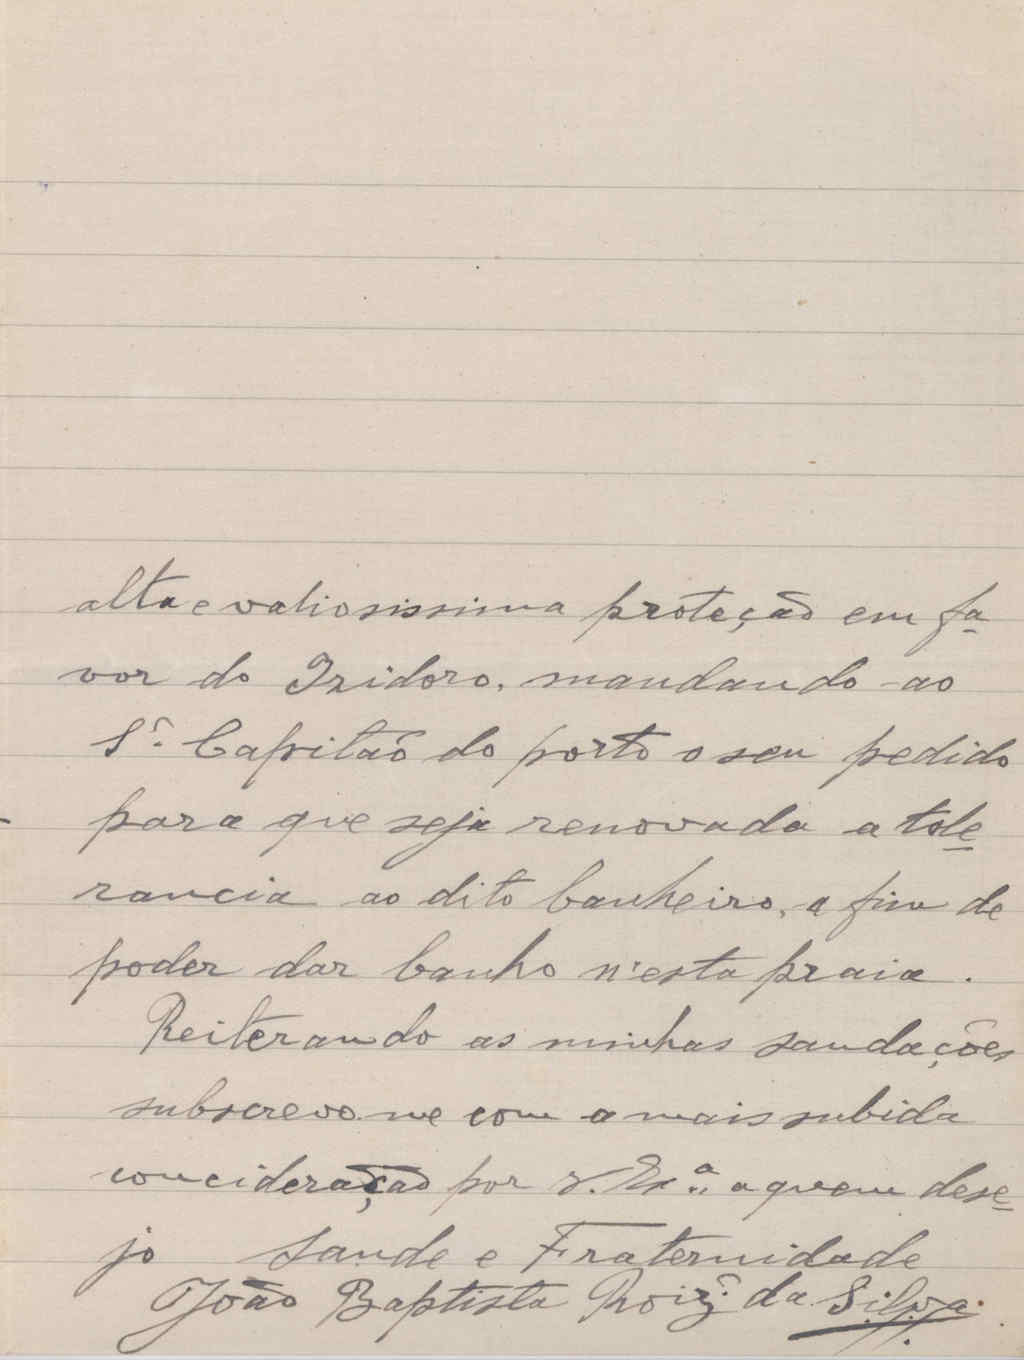 alta e valiosissima proteção em fa-
vor do Izidoro, mandando ao
Sr. Capitão do porto o seu pedido
para que seja renovada a tole-
rancia ao dito banheiro, a fim de
poder dar banho n'esta praia.
Reiterando as minhas saudações
subscrevo-me com a mais subida
concideração por V. Exª. a quem dese-
jo Saude e Fraternidade
João Baptista Roiz da Silva.